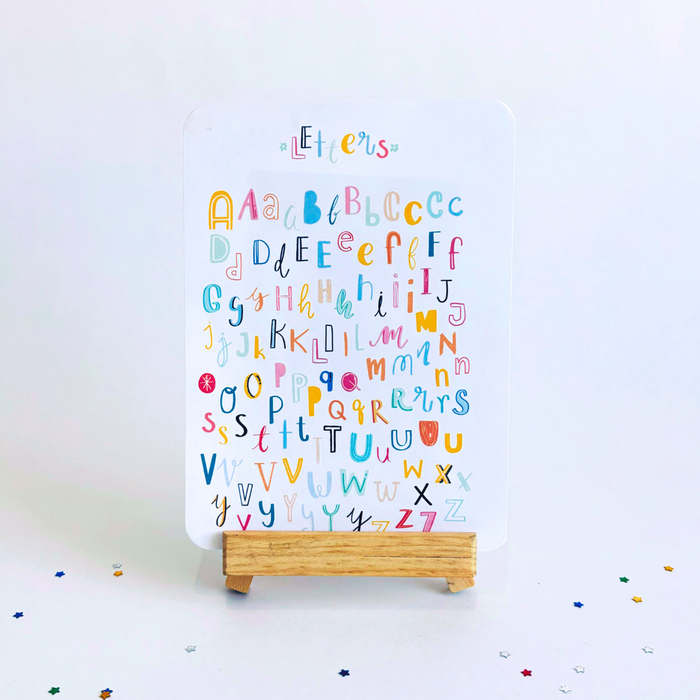 LEtters
A A a a B b B b C c C c
D d D d E E e e f f F f
G g g H h H h h i i i I J J
j j J k K K L l I l m M
m m n N n n
O O O P p P p q q
P Q q R R r r S
s s s t t t T T U u U U u
V v V V V W W w w x x
y V y Y y Y y z X Z Z Z